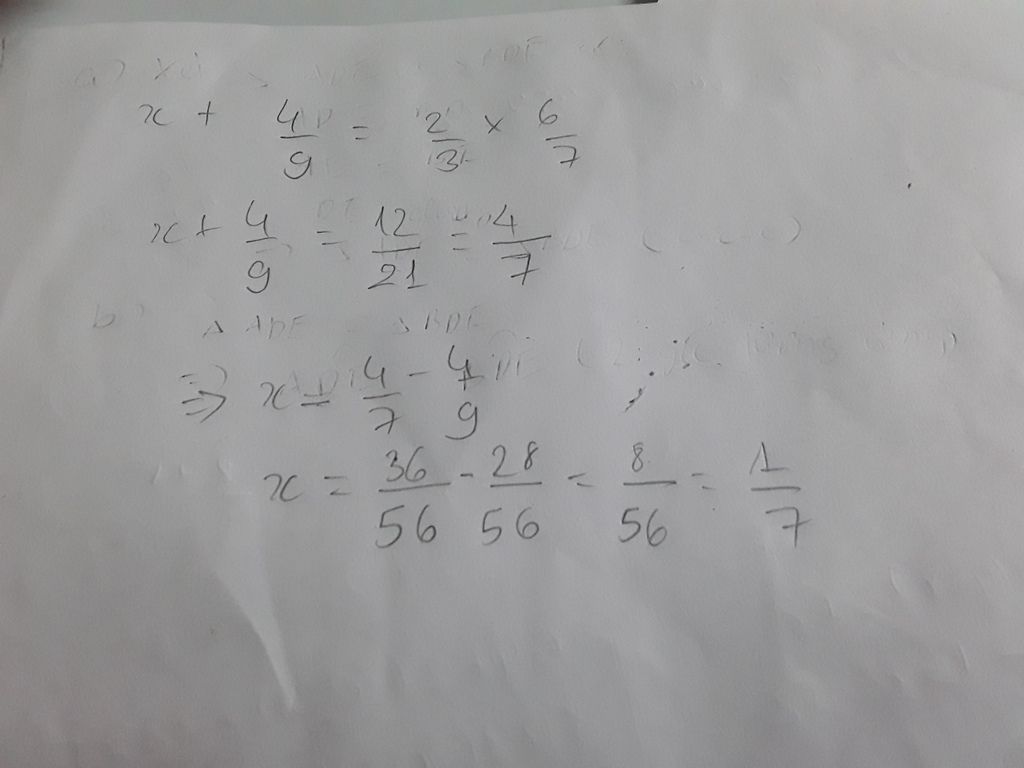 x + 4/9 = 2/3 × 6/7
x + 4/9 = 12/21 = 4/7
⇒ x = 4/7 - 4/9
x = 36/56 - 28/56 = 8/56 = 1/7